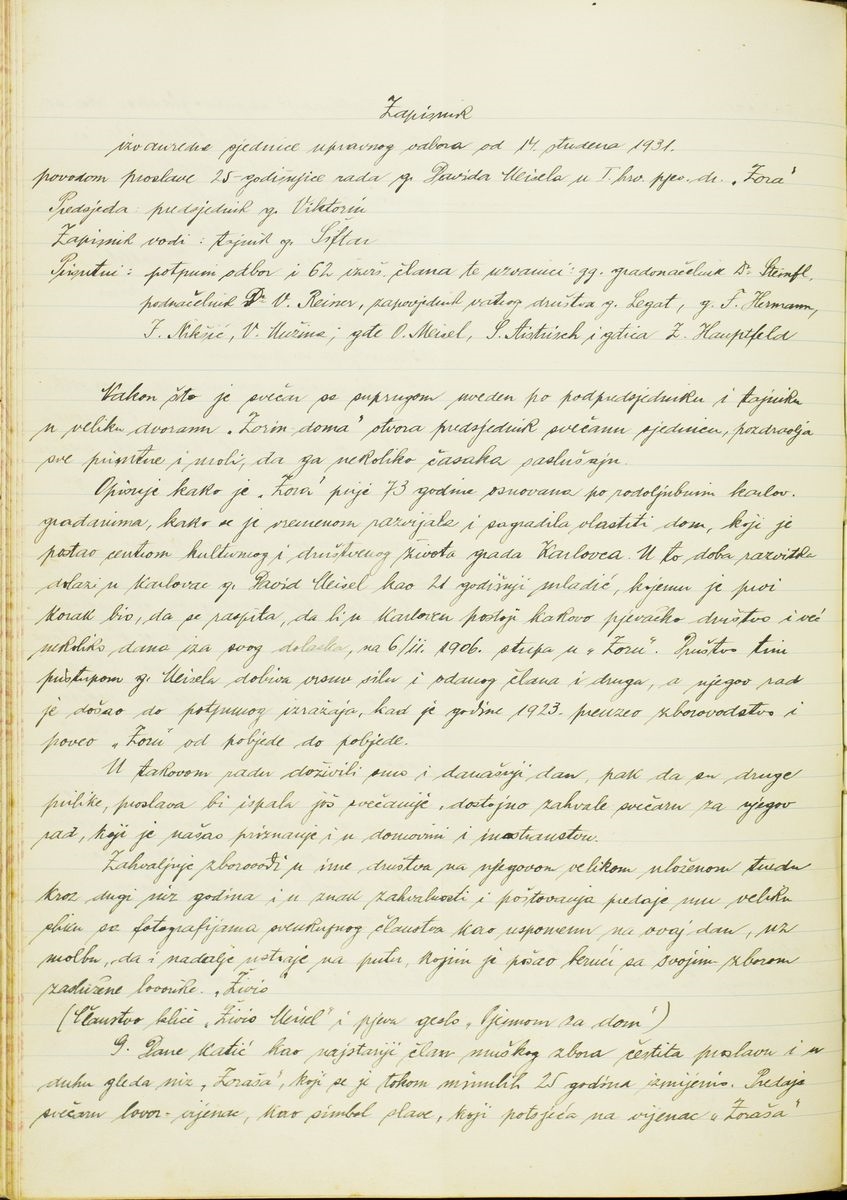 Zapisnik
izvanredne sjednice upravnog odbora od 14. studena 1931.
povodom proslave 25-godišnjice rada g. Davida Meisela u I. hrv. pjev. dr. „Zora"
Predsjeda: predsjednik g. Viktorin
Zapisnik vodi: tajnik g. Šiftar
Prisutni: potpuni odbor i 62 izvrš. člana te uzvanici: gg. gradonačelnik Dr. Steinfl,
podnačelnik Dr. V. Reiner, zapovjednik vatrog. društva g. Legat, g. F. Hermann,
F. Nikšić, V. Mužina; gđe O. Meisel, S. i gdica Z. Hauptfeld
Nakon što je svečar sa suprugom uveden po podpredsjedniku i tajniku
u veliku dvoranu „Zorin doma" otvora predsjednik svečanu sjednicu, pozdravlja
sve prisutne i moli, da ga nekoliko časaka saslušaju.
Opisuje kako je „Zora" prije 73 godine osnovana po rodoljubnim karlov.
građanima, kako se je vremenom razvijala i sagradila vlastiti dom, koji je
postao centrom kulturnog i društvenog života grada Karlovca. U to doba razvitka
dolazi u Karlovac g. David Meisel kao 21 godišnji mladić, kojemu je prvi
korak bio, da se raspita, da li u Karlovcu postoji kakovo pjevačko društvo i već
nekoliko dana iza svog dolaska, na 6/II. 1906. stupa u „Zoru". Društvo tim
pristupom g. Meisela dobiva vrsnu silu i odanog člana i druga, a njegov rad
je došao do potpunog izražaja, kad je godine 1923. preuzeo zborovodstvo i
poveo „Zoru" od pobjede do pobjede.
U takovom radu doživili smo i današnji dan, pak da su druge
prilike, proslava bi ispala još svečanije, dostojno zahvale svečaru za njegov
rad, koji je našao priznanje i u domovini i inostranstvu.
Zahvaljuje zborovođi u ime društva na njegovom velikom uloženom trudu
kroz dugi niz godina i u znak zahvalnosti i poštovanja predaje mu veliku
sliku sa fotografijama sveukupnog članstva kao uspomenu na ovaj dan, uz
molbu, da i nadalje ustraje na putu, kojim je pošao berući sa svojim zborom
zaslužene lovorike. „Živio"
(Članstvo kliče „Živio Meisel" i pjeva geslo „Pjesmom za dom")
G. Dane Katić kao najstariji član muškog zbora čestita proslavu i u
duhu gleda niz „Zoraša", koji se je tokom minulih 25 godina izmijenio. Predaje
svečaru lovor-vijenac, kao simbol slave, koji potsjeća na vijenac „Zoraša"